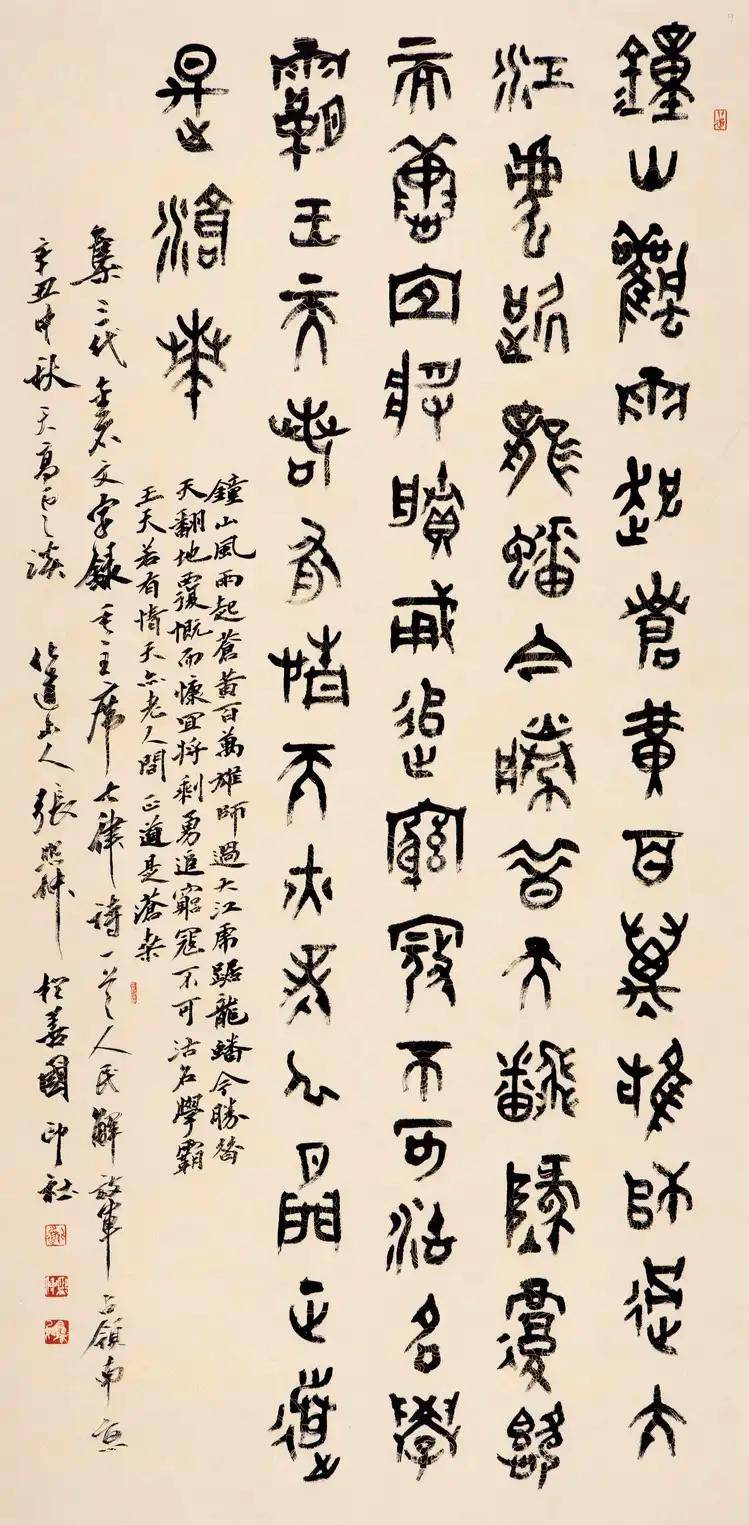 鐘山風雨起蒼黃百萬雄師過大
江虎踞龍蟠今勝昔天翻地覆慨
而慷宜將剩勇追窮寇不可沽名學
霸王天若有情天亦老人間正道
是滄桑
鐘山風雨起蒼黃百萬雄師過大江虎踞龍蟠今勝昔
天翻地覆慨而慷宜將剩勇追窮寇不可沽名學霸
王天若有情天亦老人間正道是滄桑
集三代金石文字錄毛主席七律詩一首人民解放軍占領南京
辛丑中秋天高雲淡 道山人張照 於善國印社